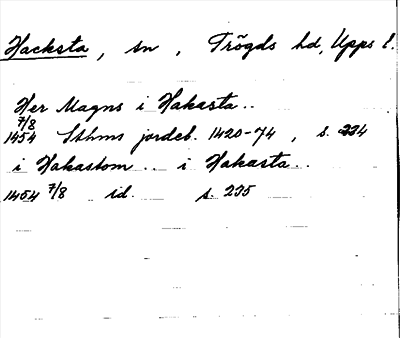 Hacksta, sn, Trögds hd, Upps l.
Her Magns i Hakasta..
7/8
1454 Sthms jordeb. 1420-74, s. 234
i Hakastom .. i Hakasta..
1454 7/8 id. s. 235